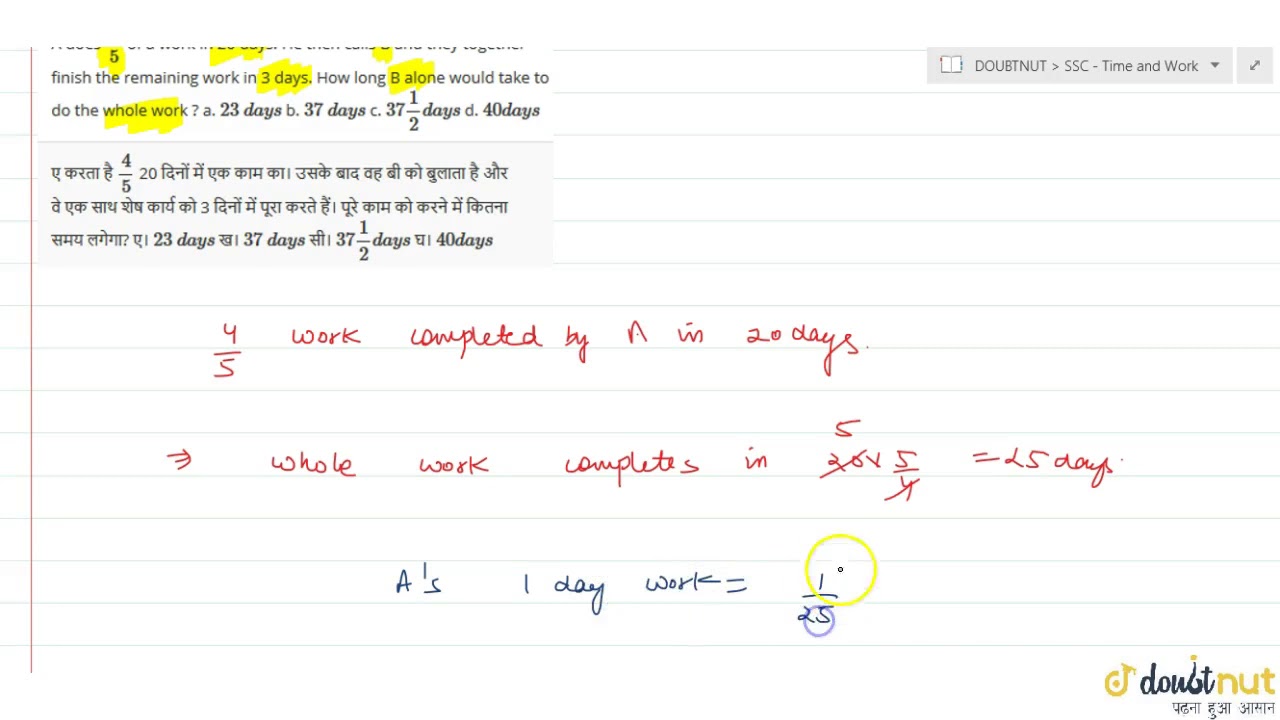 A does 5 of a work in 20 days. He then calls B and they together
finish the remaining work in 3 days. How long B alone would take to
do the whole work ? a. 23 days b. 37 days c. 37 1/2 days d. 40days
ए करता है 4/5 20 दिनों में एक काम का। उसके बाद वह बी को बुलाता है और
वे एक साथ शेष कार्य को 3 दिनों में पूरा करते हैं। पूरे काम को करने में कितना
समय लगेगा? ए। 23 days ख। 37 days सी। 37 1/2 days घ। 40days
DOUBTNUT > SSC - Time and Work
4/5 work completed by A in 20 days.
⇒ whole work completes in 5 20 x 5/4 = 25 days.
A's 1 day work = 1/25
doubtnut
पढ़ना हुआ आसान